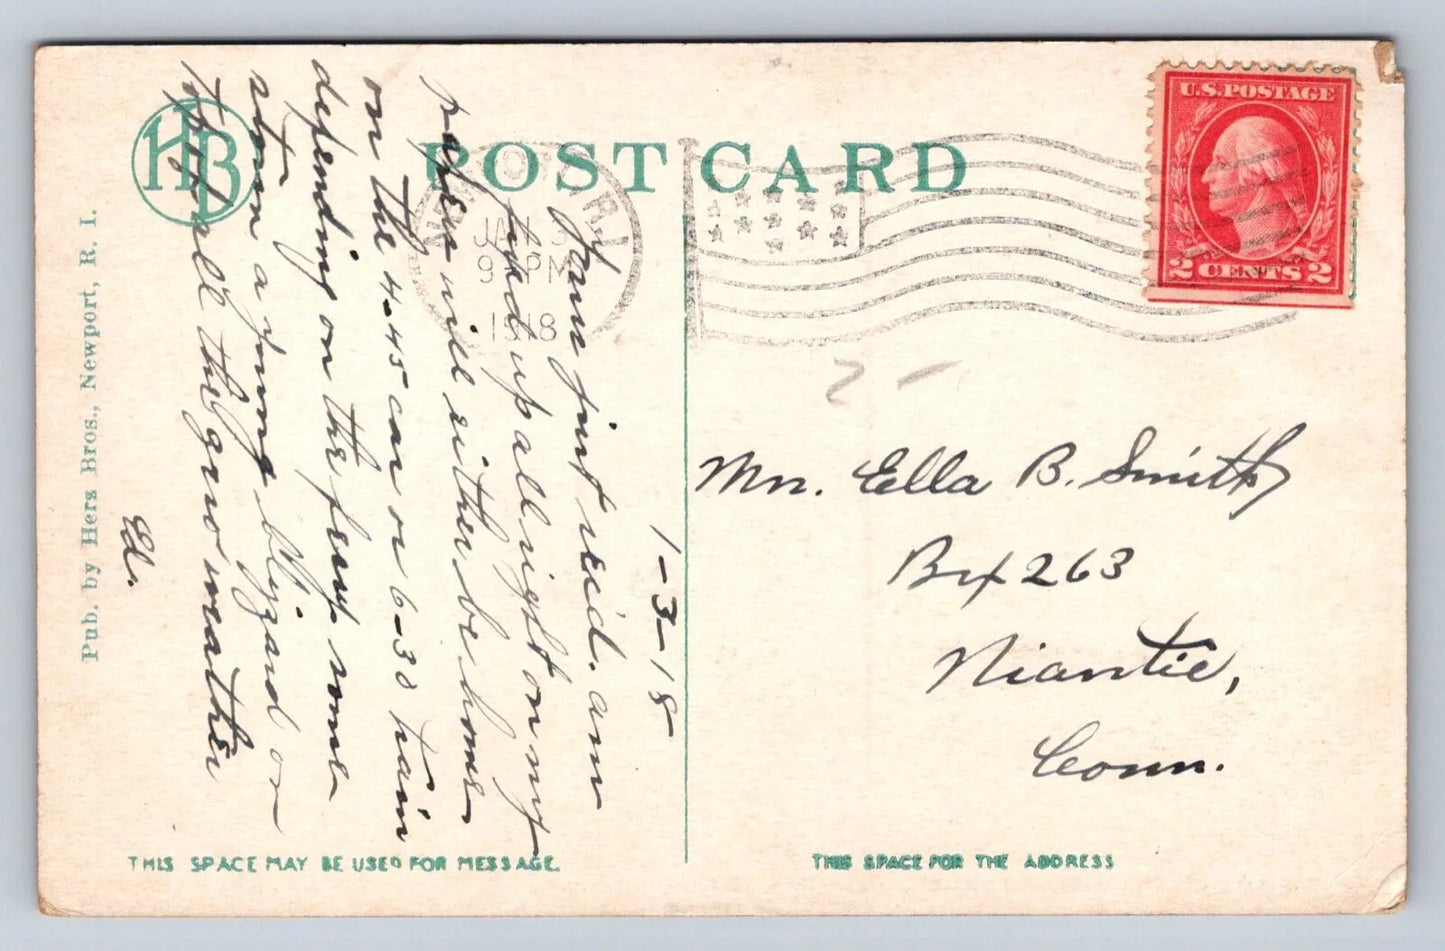 POST CARD
HB
Pub. by Herz Bros., Newport, R. I.
NEWPORT R.I.
JAN 3
9 PM
1918
U.S. POSTAGE
2 CENTS 2
1-3-18
Yours just rec'd. am
fixed up all right on my
papers will either be home
on the 4-45 car or 6-30 train
depending on the ferry some
storm a young blizzard or
to all the
Ed.
2 -
Mrs. Ella B. Smith
Box 263
Niantic,
Conn.
THIS SPACE MAY BE USED FOR MESSAGE.
THIS SPACE FOR THE ADDRESS